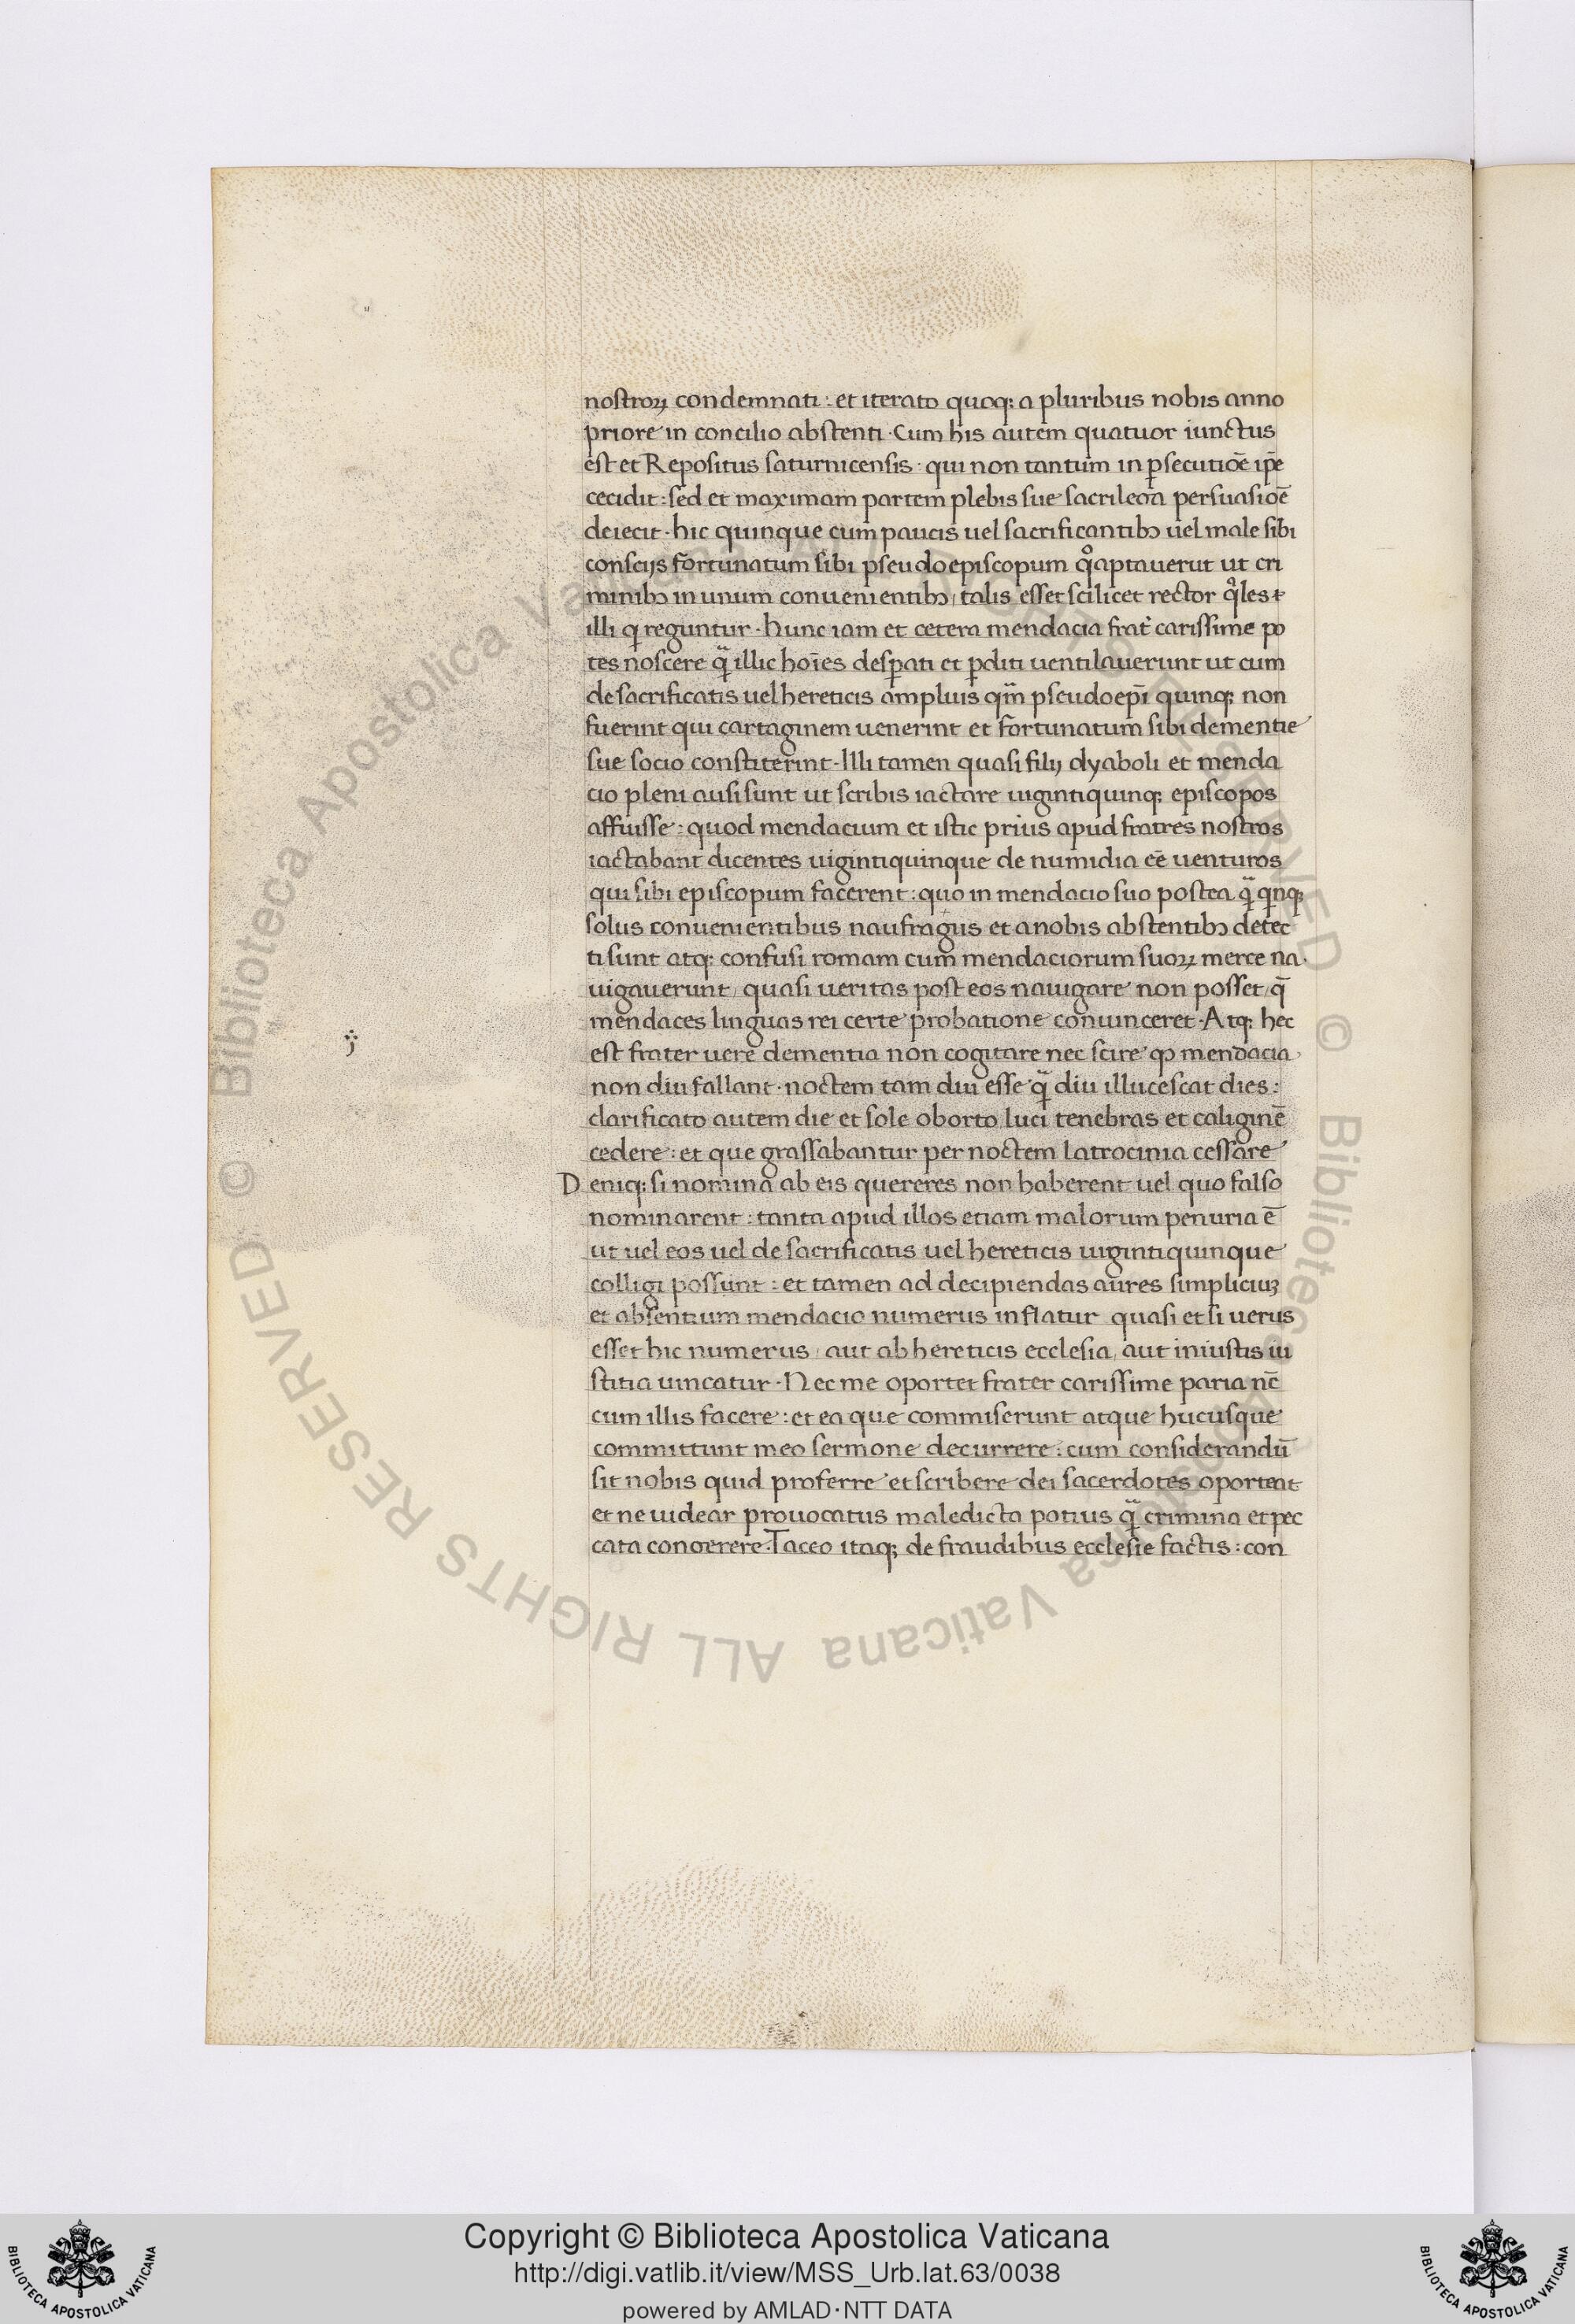 nostroꝝ condemnati : et iterato quoqꝫ a pluribus nobis anno
priore in concilio abstenti · Cum his autem quatuor iunctus
est et Repositus saturnicensis : qui non tantum in ꝑsecutiōe ip̄e
cecidit : sed et maximam partem plebis sue sacrilega persuasiōe
deiecit · hic quinque cum paucis uel sacrificantibꝫ uel male sibi
conscijs fortunatum sibi pseudoepiscopum qͦaptauerut ut cri
minibꝫ in unum conuenientibꝫ / talis esset scilicet rector
illi qͥ reguntur · hunc iam et cetera mendacia frat̄ carissime po
tes noscere qᷓ illic hoīes desꝑati et ꝑditi uentilauerunt ut cum
de sacrificatis uel hereticis amplius qᷓm pseudoep̄i quinqꝫ non
fuerint qui cartaginem uenerint et fortunatum sibi dementie
sue socio constiterint · Illi tamen quasi filij dyaboli et menda
cio pleni ausi sunt ut scribis iactare uigintiquinqꝫ episcopos
affuisse : quod mendacium et istic prius apud fratres nostros
iactabant dicentes uigintiquinque de numidia eē uenturos
qui sibi episcopum facerent : quo in mendacio suo postea qᷓ qͥnqꝫ
solus conuenientibus naufragus et anobis abstentibꝫ detec
ti sunt atqꝫ confusi romam cum mendaciorum suoꝝ merce na
uigauerunt / quasi ueritas post eos nauigare non posset / q̄
mendaces linguas rei certe probatione conuinceret · Atqꝫ hec
est frater uere dementia non cogitare nec scire ꝙ mendacia
non diu fallant · noctem tam diu esse qᷓ diu illucescat dies :
clarificato autem die et sole oborto luci tenebras et caliginē
cedere : et que grassabantur per noctem latrocinia cessare
Deniqꝫ si nomina ab eis quereres non haberent uel quo falso
nominarent : tanta apud illos etiam malorum penuria ē
ut uel eos uel de sacrificatis uel hereticis uigintiquinque
colligi possunt : et tamen ad decipiendas aures simpliciuꝫ
et absentium mendacio numerus inflatur quasi et si uerus
esset hic numerus / aut ab hereticis ecclesia / aut iniustis iu
stitia uincatur · Nec me oportet frater carissime paria nc̄
cum illis facere : et ea que commiserunt atque hucusque
committunt meo sermone decurrere : cum considerandū
sit nobis quid proferre et scribere dei sacerdotes oporteat
et ne uidear prouocatus maledicta potius qᷓ crimina et pec
cata congerere · Taceo itaqꝫ de fraudibus ecclesie factis : con
© Biblioteca Apostolica Vaticana ALL RIGHTS RESERVED © Biblioteca Apostolica Vaticana ALL RIGHTS RESERVED
Copyright © Biblioteca Apostolica Vaticana
http://digi.vatlib.it/view/MSS_Urb.lat.63/0038
powered by AMLAD·NTT DATA
BIBLIOTECA APOSTOLICA VATICANA
BIBLIOTECA APOSTOLICA VATICANA